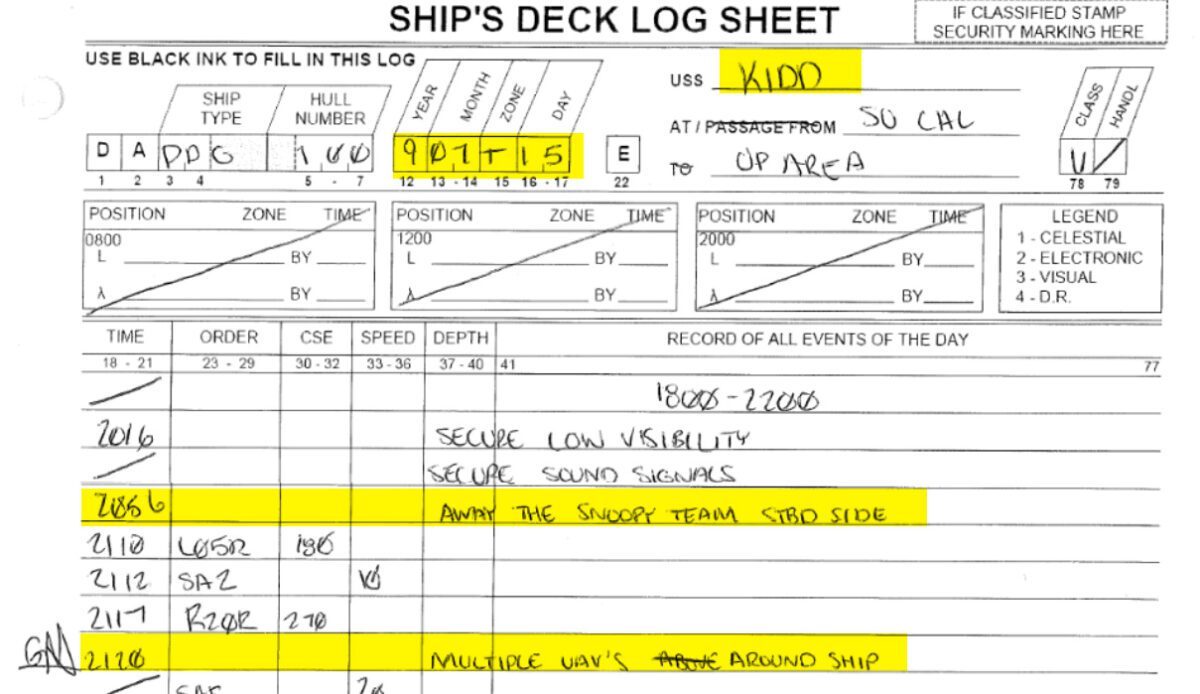 SHIP'S DECK LOG SHEET
IF CLASSIFIED STAMP
SECURITY MARKING HERE
USE BLACK INK TO FILL IN THIS LOG
SHIP TYPE HULL NUMBER YEAR MONTH ZONE DAY
USS KIDD
CLASS HANDL
AT / PASSAGE FROM SO CAL
D A DDG 100 9 07 T 15 E
TO OP AREA
U /
1 2 3 4 5 - 7 12 13 - 14 15 16 - 17 22 78 79
POSITION ZONE TIME POSITION ZONE TIME POSITION ZONE TIME LEGEND
0800 1200 2000 1 - CELESTIAL
L BY L BY L BY 2 - ELECTRONIC
3 - VISUAL
λ BY λ BY λ BY 4 - D.R.
TIME ORDER CSE SPEED DEPTH RECORD OF ALL EVENTS OF THE DAY
18 - 21 23 - 29 30 - 32 33 - 36 37 - 40 41 77
1800-2200
2016 SECURE LOW VISIBILITY
SECURE SOUND SIGNALS
2056 AWAY THE SNOOPY TEAM STBD SIDE
2110 L05R 180
2112 SA2 10
2117 R20R 270
GM 2120 MULTIPLE UAV'S ABOVE AROUND SHIP
20